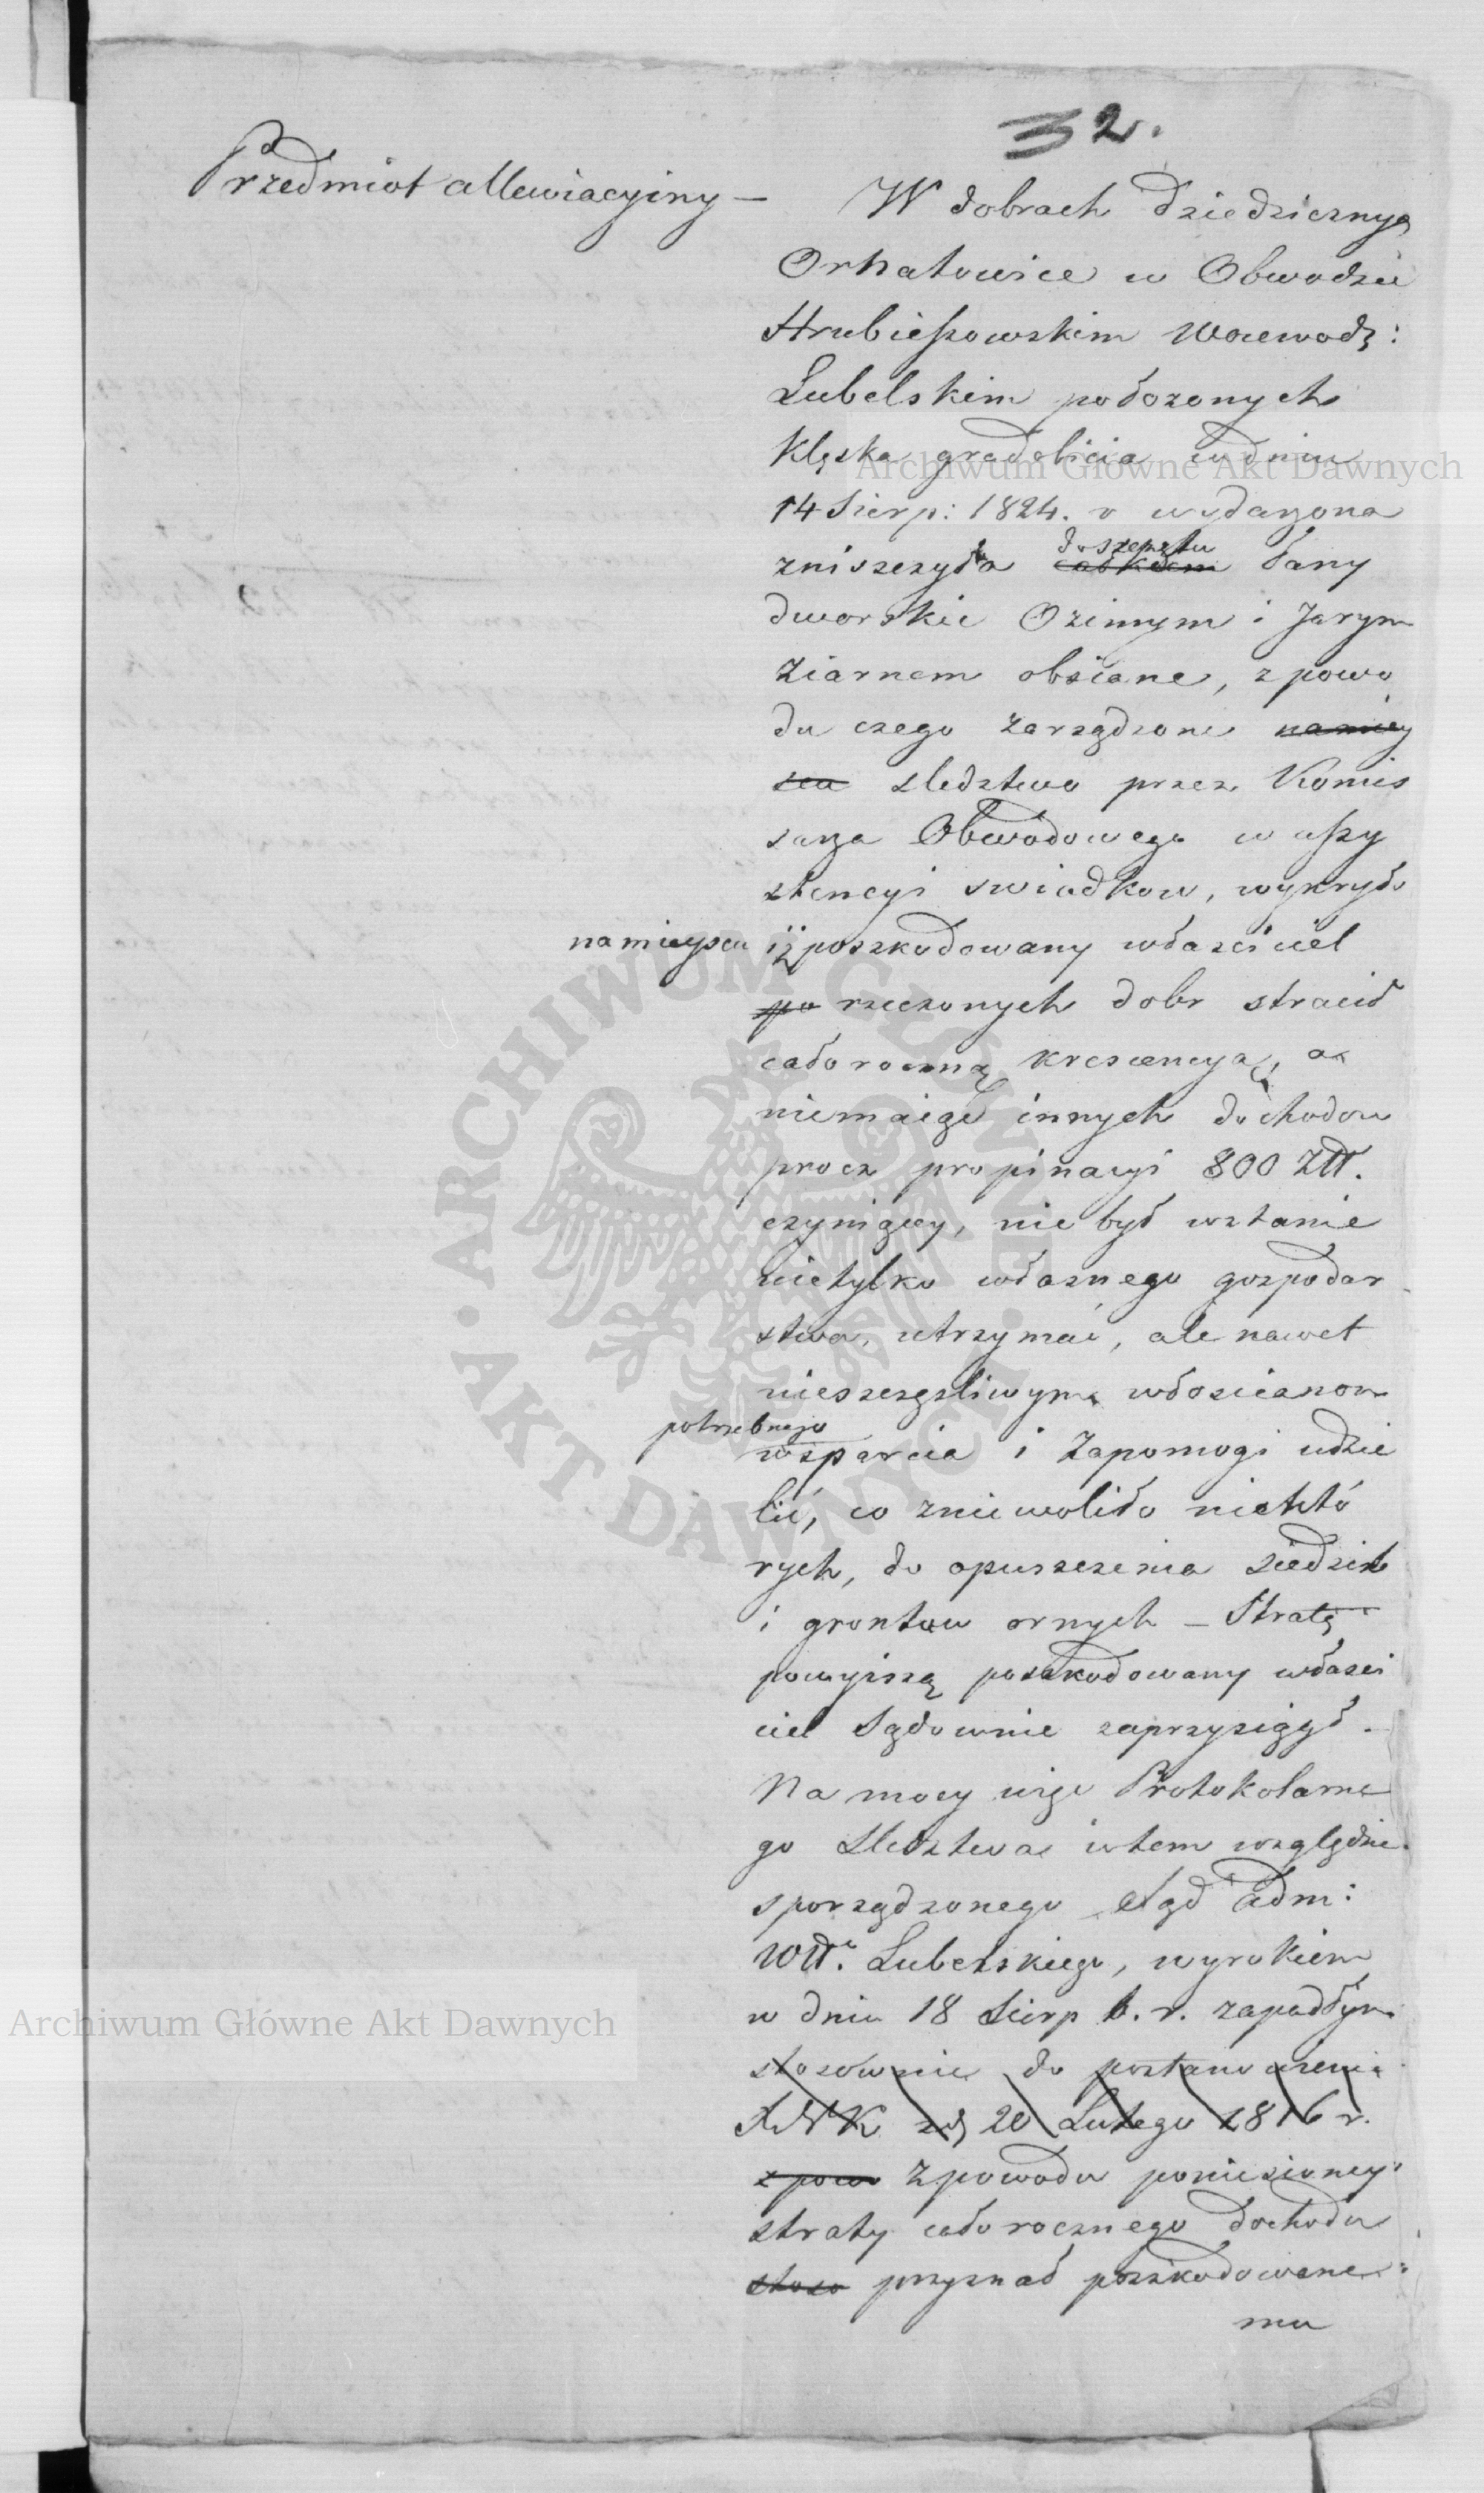 32.
Przedmiot allewiacyiny —
W dobrach dziedzicznych
Ornatowice w Obwodzie
Hrubieszowskim Woiewodz:
Lubelskim położonych
Klęska gradobicia w dniu
14 Sierp: 1824. r wydarzona
zniszczyła całkiem doszczętu łany
dworskie Ozimym i Jarym
Ziarnem obsiane, z powo
du czego zarządzone na miey
scu sledztwo przez Komis
sarza Obwodowego w assy
stencyi swiadkow, wykryło
na mieyscu iż poszkodowany własciciel
po rzeczonych dobr stracił
całoroczną krescencyą, a
niemaiąc innych dochodow
procz propinacyi 800 Złł.
czyniącey, nie był wstanie
nietylko własnego gospodar
stwa, utrzymać, ale nawet
nieszczęsliwym włoscianom
potrzebnego wsparcia i Zapomogi udzie
lić, co zniewoliło niektó
rych, do opuszczenia siedzib
i grontow ornych — Stratę
powyższą poszkodowany własci
ciel Sądownie zaprzysiągł.
Na mocy więc Protokolarne
go Sledztwa wtem względzie
sporządzonego Sąd adm:
Wtt. Lubelskiego, wyrokiem
w dniu 18 Sierp b. r. zapadłym
stosównie do postanowienia
X N K z d 20 Lutego 1816 r.
z powo Z powodu poniesioney
straty całorocznego dochodu
stoso przyznał poszkodowane:
mu
Archiwum Główne Akt Dawnych
Archiwum Główne Akt Dawnych
ARCHIWUM GŁÓWNE • AKT DAWNYCH •